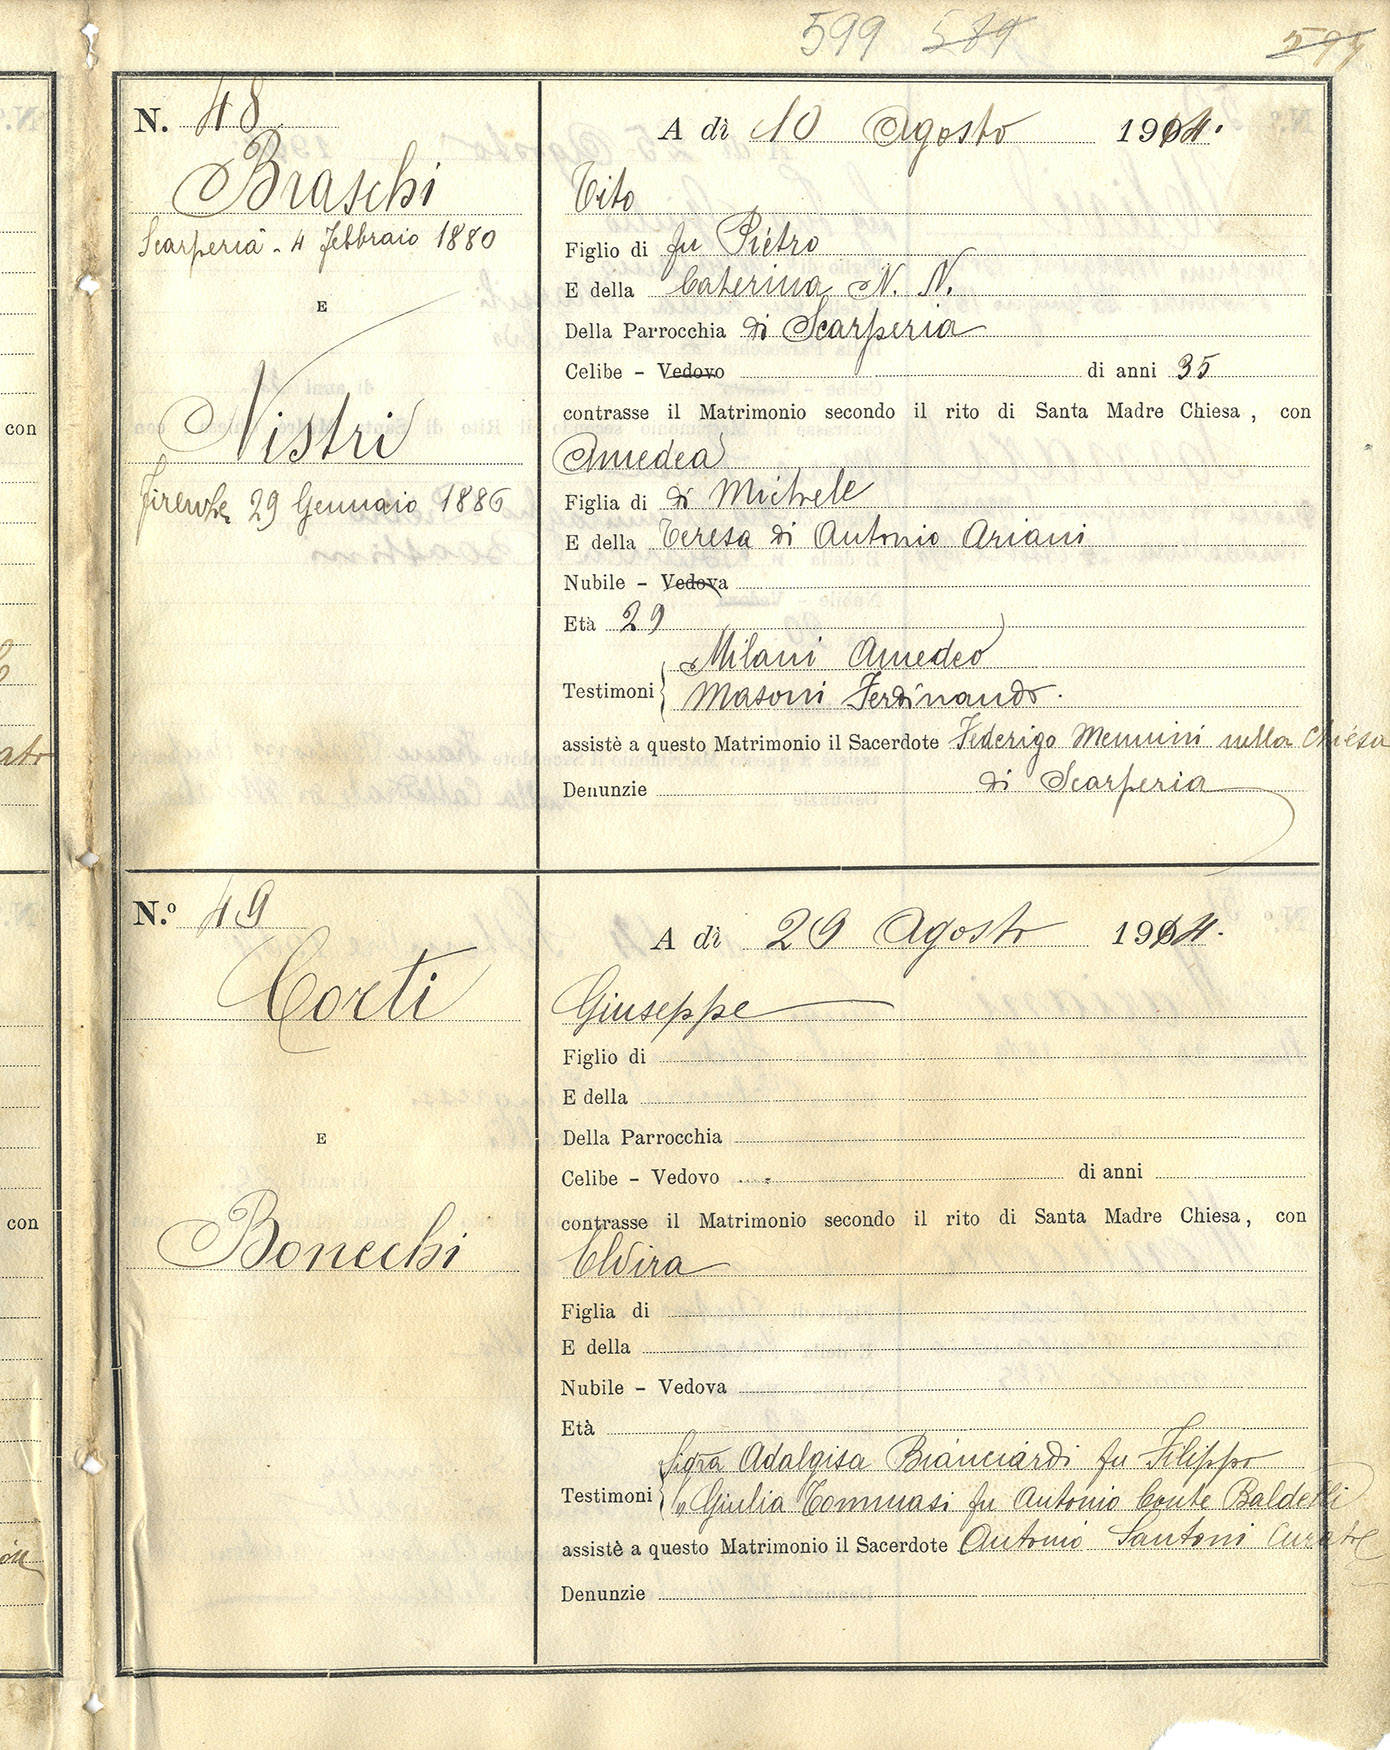 599 589 595
N. 48
Braschi
Scarperia - 4 Febbraio 1880
E
Nistri
Firenze 29 Gennaio 1886
A dì 10 Agosto 1914.
Tito
Figlio di fu Pietro
E della Caterina N. N.
Della Parrocchia di Scarperia
Celibe - Vedovo di anni 35
contrasse il Matrimonio secondo il rito di Santa Madre Chiesa, con
Amedea
Figlia di di Michele
E della Teresa di Antonio Ariani
Nubile - Vedova
Età 29
Testimoni Milani Amedeo
Masoni Ferdinando.
assistè a questo Matrimonio il Sacerdote Federigo Mennini nella Chiesa
Denunzie di Scarperia
N.º 49
Corti
E
Bonechi
A dì 29 Agosto 1914.
Giuseppe
Figlio di
E della
Della Parrocchia
Celibe - Vedovo di anni
contrasse il Matrimonio secondo il rito di Santa Madre Chiesa, con
Elvira
Figlia di
E della
Nubile - Vedova
Età
Testimoni Sigra Adalgisa Bianciardi fu Filippo
" Giulia Tommasi fu Antonio Conte Baldelli
assistè a questo Matrimonio il Sacerdote Antonio Santoni Curato
Denunzie
con
con